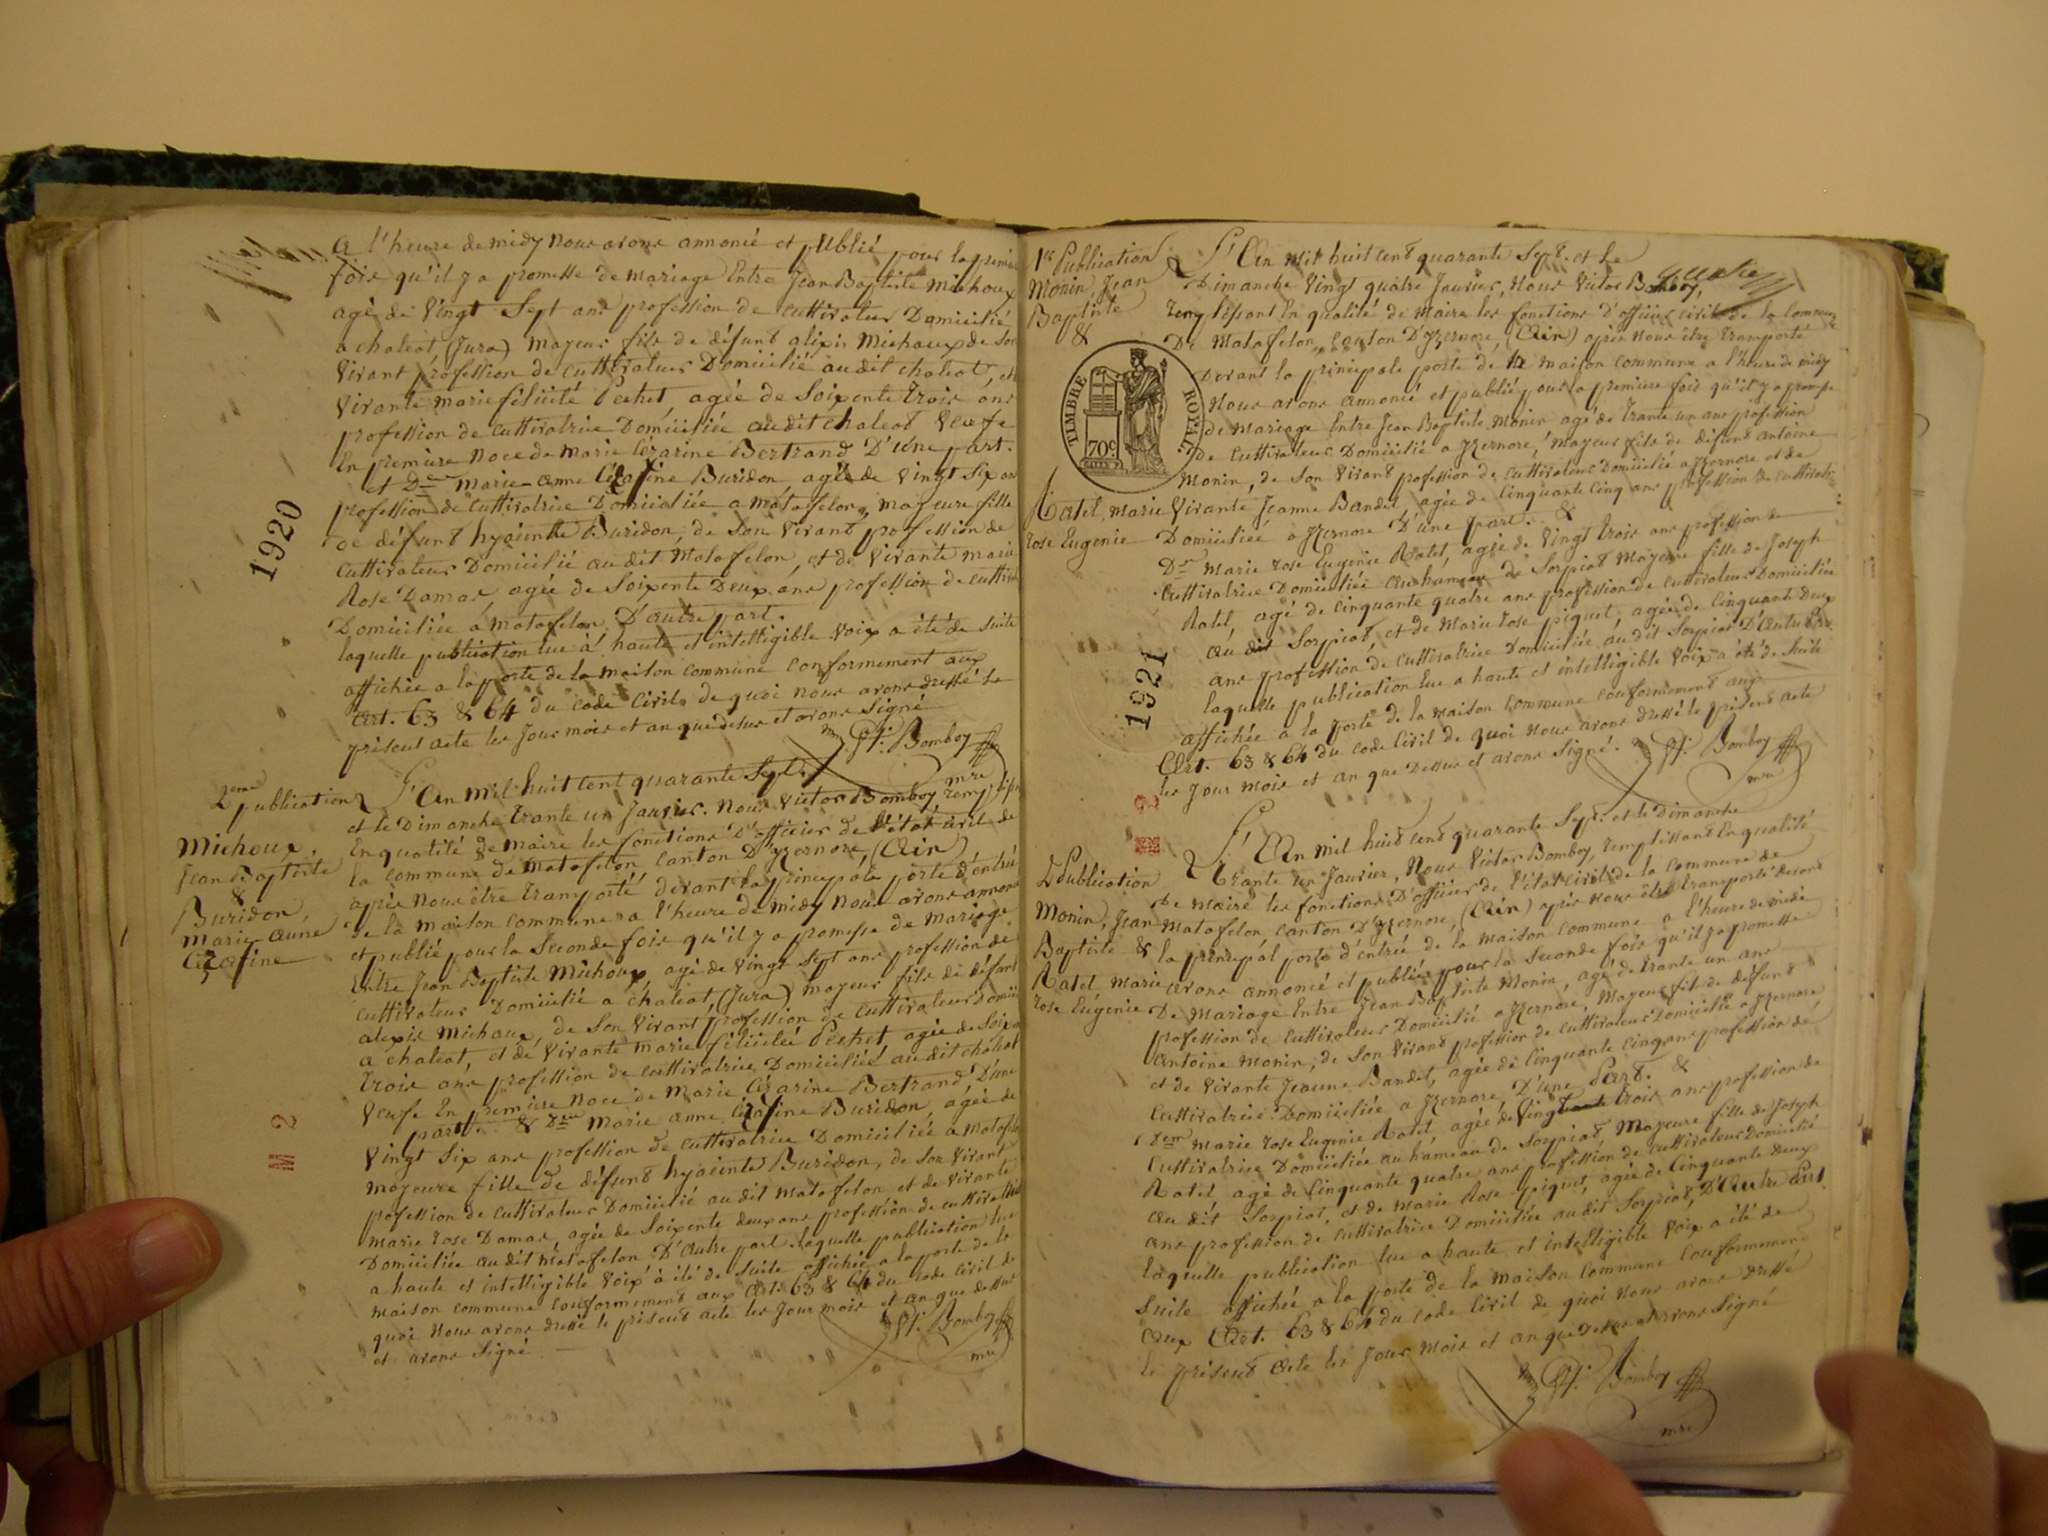 A l'heure de midy nous avons annoncé et publié pour la premiè
fois qu'il y a promesse de mariage Entre Jean Baptiste Michoux
agé de Vingt Sept ans profession de cultivateur Domicilié
a chaleat, (Jura) mayeur fils de défunt alexis Michaux de Son
Vivant profession de cultivateur Domicilié audit chaleat, et
Vivante marie félicité Pernet agée de Soixente trois ans
profession de cultivatrice Domiciliée audit chaleat Veufe
En premiere noce de marie Cézarine Bertrand D'une part.
et Dme marie anne Cézafine Buridon, agée de Vingt Six ans
profession de cultivatrice Domiciliée a matafelon, majeure fille
de défunt hyacinthe Buridon, de Son Vivant profession de
cultivateur Domicilié au dit Matafelon, et de Vivante marie
Rose Damas, agée de Soixente Deux ans profession de cultiva
Domiciliée a matafelon, D'autre part.
laquelle publication lue à haute et intelligible Voix a été de Suite
affichée a la porte de la maison commune conformement aux
Art. 63 & 64 du code Civil, de quoi nous avons dressé le
présent acte les Jour mois et an que desus et avons Signé
Vr. Bomboy
mre
1920
2eme publication
Michoux,
Jean Baptiste
&
Buridon,
Marie anne
Cézafine
L'An mil huit cent quarante Sept.
et le Dimanche trante un Janvier. Nous Victor Bomboy remplis
En qualité de maire les fonctions D'officier de l'état civil de
la commune de Matafelon canton D'yzernore, (Ain)
après nous être transporté devant la principale porte d'entré
de la maison commune a l'heure de midy nous avons annoncé
et publié pour la Seconde fois qu'il y a promesse de Mariage
Entre Jean Baptiste Michoux, agé de Vingt Sept ans profession de
cultivateur Domicilié a chaleat, (Jura) mayeur fils de défunt
alexis Michaux, de Son Vivant profession de cultivateur Domici
a chaleat, et de Vivante marie félicitée Pernet, agée de Soixe
trois ans profession de cultivatrice Domiciliée, audit chaleat
Veufe En premiere noce de Marie Cézarine Bertrand, D'une
part. & Dme Marie anne Cézafine Buridon, agée de
Vingt Six ans profession de cultivatrice Domiciliée a matafe
mayeure fille de défunt hyacinte Buridon, de Son Vivant
profession de cultivateur Domicilié au dit Matafelon et de Vivante
marie rose Damas, agée de Soixente deux ans profession de cultivatrice
Domiciliée au dit Matafelon D'autre part laquelle publication lue
a haute et intelligible Voix a été de Suite affichée a la porte de la
maison commune conformement aux Art. 63 & 64 du code Civil de
quoi nous avons dressé le présent acte les Jour mois et an que dessus
et avons Signé.
Vr. Bomboy
mre
M 2
1re Publication
Monin, Jean
Baptiste
&
TIMBRE ROYAL
70c
Ratel, marie
rose Eugenie
L'An mil huit cent quarante Sept. et le
Dimanche Vingt quatre Janvier, Nous Victor Bomboy,
remplissant En qualité de Maire les fonctions D'officier civil de la commune
De Matafelon, canton D'yzernore, (Ain) après nous être transporté
Devant la principale porte de la maison commune a l'heure de midy
Nous avons annoncé et publié pour la premiere fois qu'il y a promesse
de Mariage Entre Jean Baptiste Monin agé de trante un ans profession
de Cultivateur Domicilié a yzernore, mayeur fils de défunt antoine
Monin, de Son Vivant profession de cultivateur Domicilié a yzernore et de
Vivante Jeanne Bandet, agée de Cinquante Cinq ans profession de cultivatri
Domiciliée a yzernore D'une part. &
Dme Marie rose Eugenie Ratel, agée de Vingt trois ans profession de
Cultivatrice Domiciliée au hameau de Sorpiat Mayeure fille de Joseph
Ratel, agé de Cinquante quatre ans profession de cultivateur Domicilié
au dit Sorpiat, et de Marie rose piquet, agée de Cinquante deux
ans profession de Cultivatrice Domiciliée, au dit Sorpiat D'Autre Part
laquelle publication lue a haute et intelligible Voix a été de Suite
affichée a la porte de la maison commune conformement aux
Art. 63 & 64 du code Civil de quoi nous avons dressé le présent acte
les Jour mois et an que Dessus et avons Signé.
Vr. Bomboy
mre
1921
M 2
2e Publication
Monin, Jean
Baptiste &
Ratel, Marie
rose Eugénie
L'An mil huit cent quarante Sept. et le dimanche
trante un Janvier, Nous Victor Bomboy, remplissant En qualité
de maire les fonctions D'officier de l'état civil de la commune de
Matafelon, canton D'yzernore, (Ain) après nous être transporté devant
la principal porte d'entrée de la maison commune a l'heure de midi
avons annoncé et publiée pour la Seconde fois qu'il y a promesse
De Mariage Entre Jean Baptiste Monin, agé de trante un ans
profession de cultivateur Domicilié a yzernore, Mayeur fils de défunt
Antoine Monin, de Son Vivant profession de cultivateur Domicilié a yzernore
et de Vivante Jeanne Bandet, agée de Cinquante Cinq ans profession de
Cultivatrice Domiciliée a yzernore, D'une Part. &
Dme Marie rose Eugenie Ratel, agée de Vingt trois ans profession de
Cultivatrice Domiciliée au hameau de Sorpiat Mayeure fille de Joseph
Ratel, agé de Cinquante quatre ans profession de cultivateur Domicilié
au dit Sorpiat, et de Marie Rose piquet, agée de Cinquante deux
ans profession de cultivatrice Domiciliée au dit Sorpiat, D'Autre Part.
laquelle publication lue a haute et intelligible Voix a été de
Suite affichée a la porte de la maison commune conformement
aux Art. 63 & 64 du code Civil de quoi nous avons dressé
le présent acte les Jour mois et an que Dessus et avons Signé
Vr. Bomboy
mre